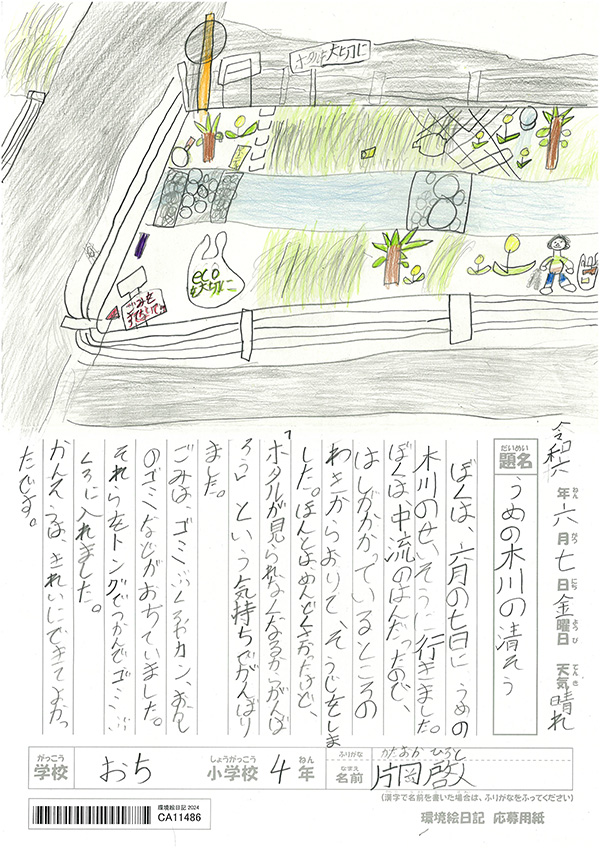 ホタルを大切に
ecoを大切に
ごみをすてないで
令和六年六月七日金曜日 天気晴れ
ねん
がつ
にち
ようび
てんき
だいめい
題名
うめの木川の清そう
ぼくは、六月の七日にうめの
木川のせいそうに行きました。
ぼくは、中流のはんだったので、
はしがかかっているところの
わきからおりて、そうじをしま
した。ほんとはめんどくさかったけど、
「ホタルが見られなくなるからがんば
ろう」という気持ちでがんばり
ました。
ごみは、ゴミぶくろやカン、おかし
のゴミなどがおちていました。
それらをトングでつかんでゴミぶ
くろに入れました。
かんそうは、きれいにできてよかっ
たです。
がっこう
学校
おち
しょうがっこう
小学校
4
ねん
年
ふりがな
かたおか ひろと
なまえ
名前
片岡啓人
(漢字で名前を書いた場合は、ふりがなをふってください)
環境絵日記 2024
CA11486
環境絵日記 応募用紙